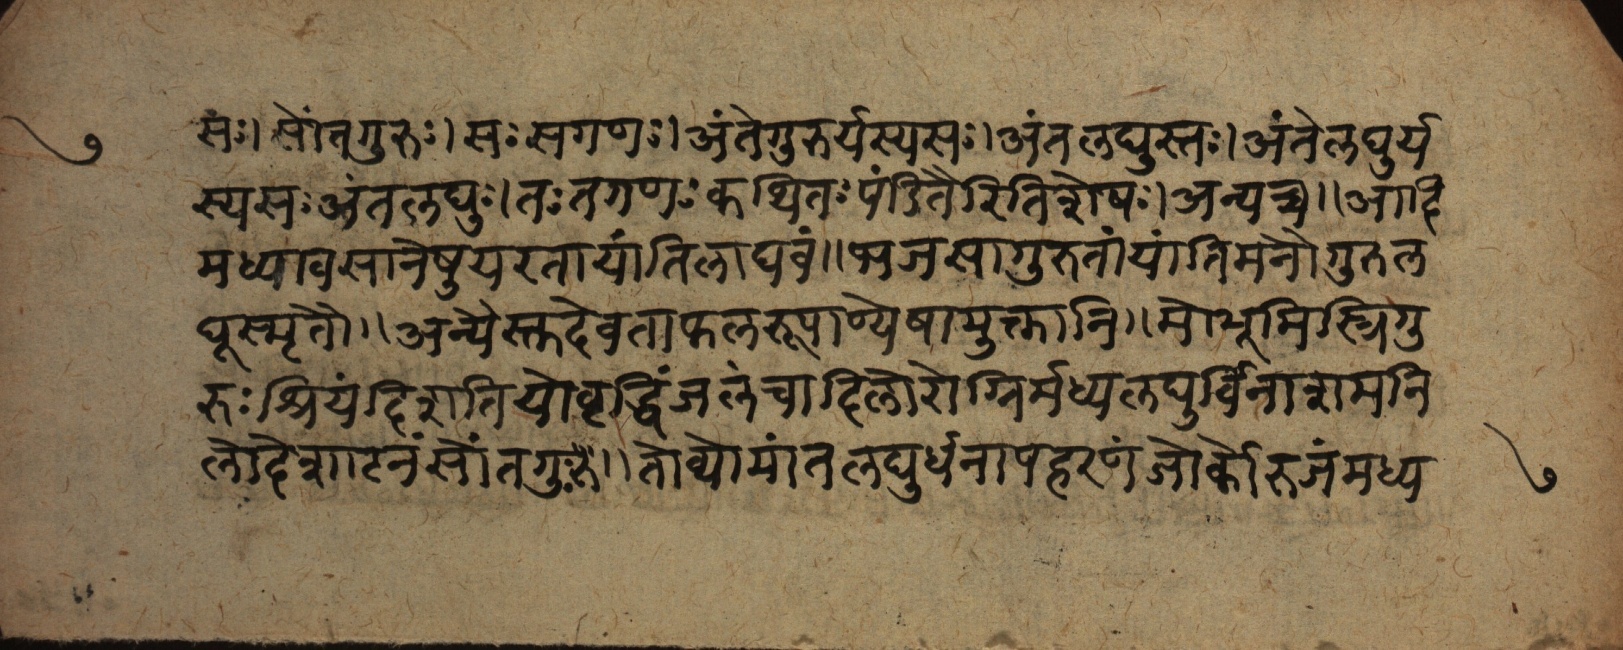 सः। सोंतगुरुः। सः सगणः। अंतेगुरुर्यस्यसः। अंतलघुस्तः। अंतेलघुर्य
स्यसः अंतलघुः। तः तगणः कथितः पंडितैरितिशेषः। अन्यच्च॥ आदि
मध्यावसानेषुयरतायांतिलाघवं॥ भजसागुरुतांयांतिमनौगुरुल
घूस्मृतौ॥ अन्यैस्तुदेवताफलरूपाण्येषामुक्तानि॥ मोभूमिस्त्रिगु
रुः श्रियंदिशतियोवृद्धिंजलंचादिलोरोग्निर्मध्यलघुर्विनाशमनि
लोदेशाटनंसोंतगुरुः॥ तोव्योमांतलघुर्धनापहरणंजोर्कोरुजंमध्य
७
७